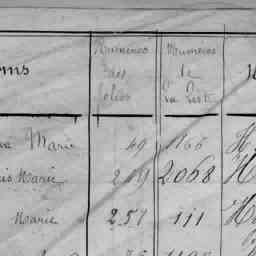 Numeros Numeros
oms des de
folios la liste
Marie 49 1166 H
Marie 219 2068 H
Marie 251 111 H